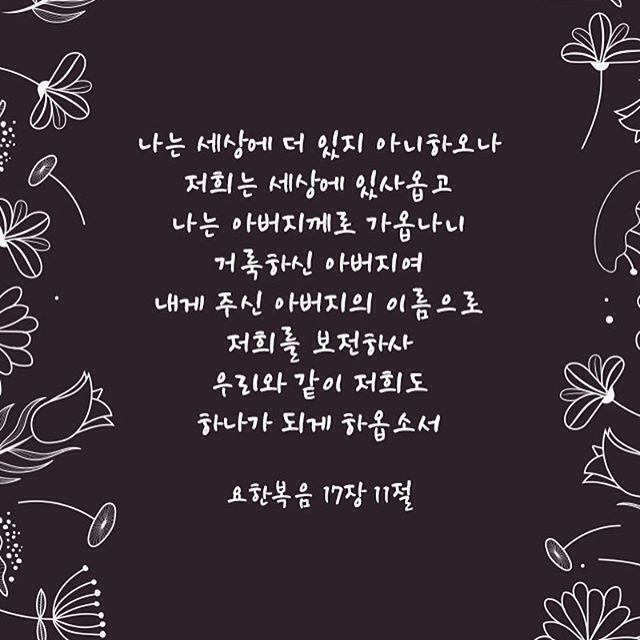 나는 세상에 더 있지 아니하오나
저희는 세상에 있사옵고
나는 아버지께로 가옵나니
거룩하신 아버지여
내게 주신 아버지의 이름으로
저희를 보전하사
우리와 같이 저희도
하나가 되게 하옵소서
요한복음 17장 11절